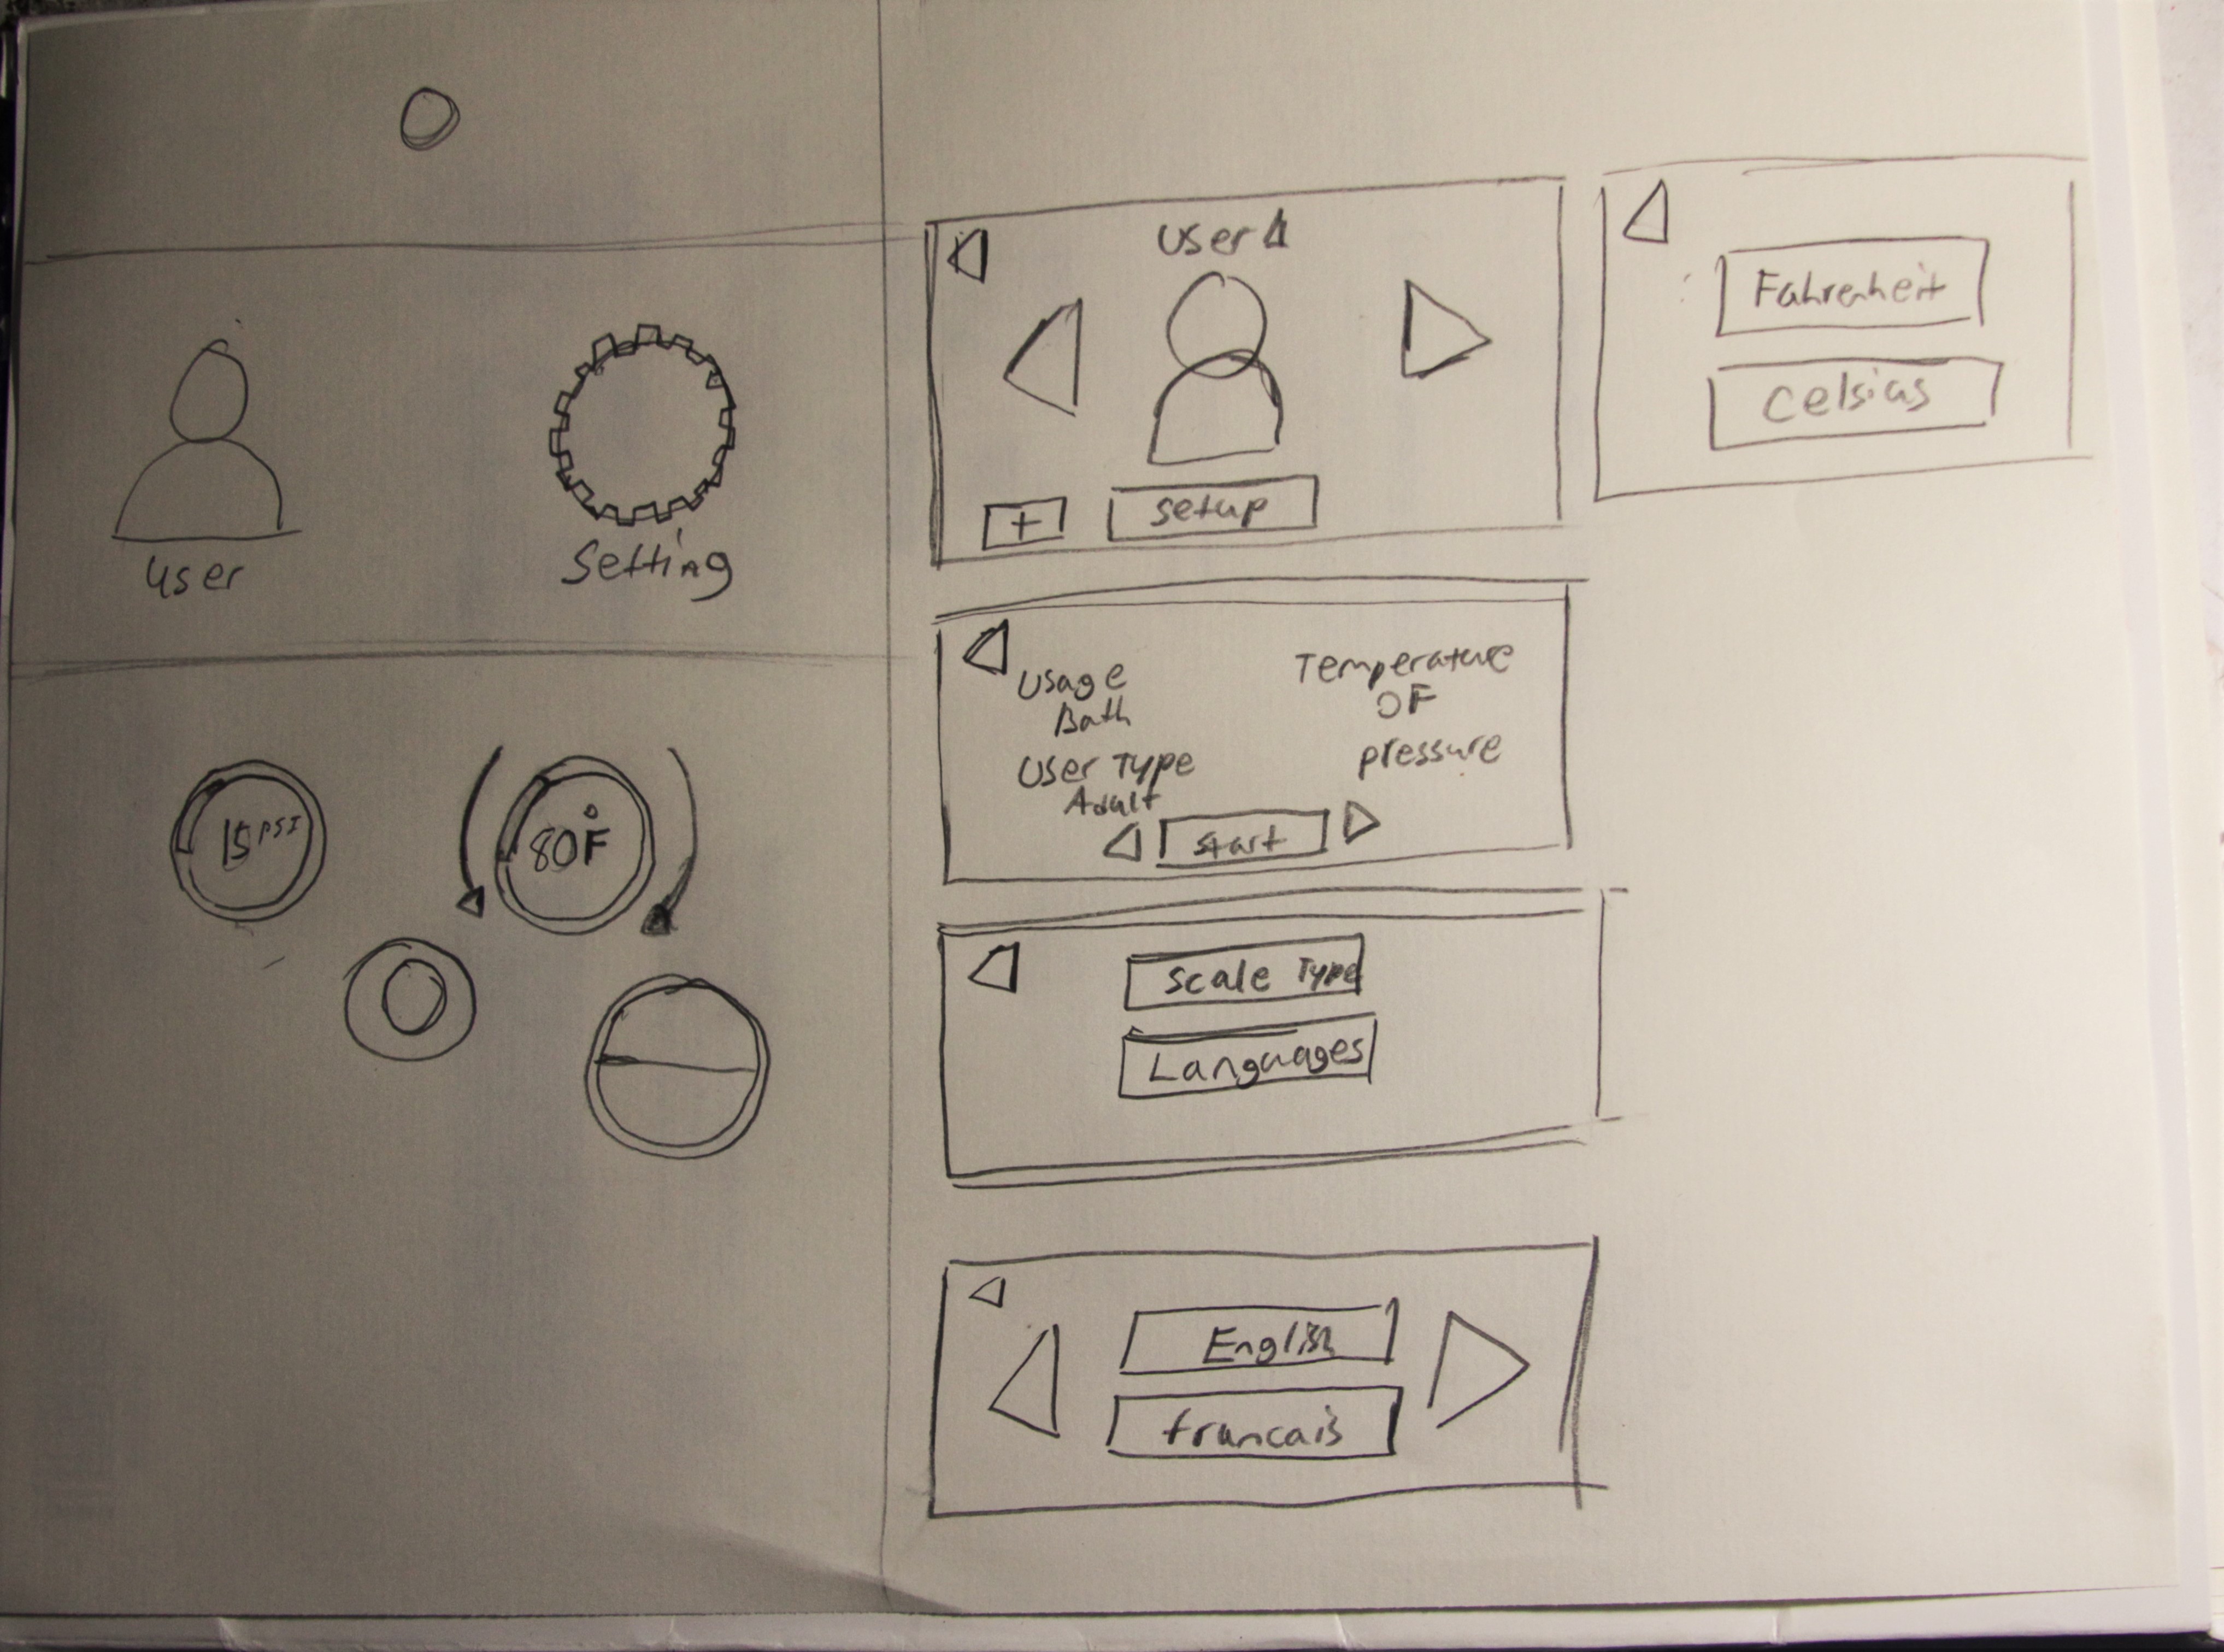 User
Setting
15 PSI
80°F
User 1
+
setup
Fahrenheit
Celsius
Usage
Bath
User Type
Adult
Temperature
OF
pressure
start
Scale Type
Languages
English
francais